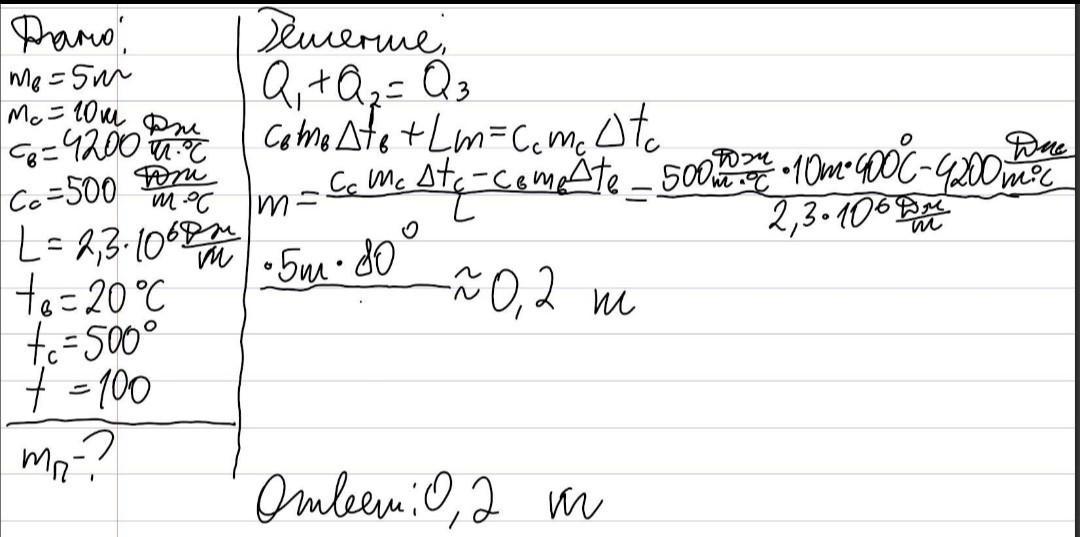 Дано:
mв = 5т
mс = 10т
cв = 4200 Дж/т·°C
cс = 500 Дж/т·°C
L = 2,3·10⁶ Дж/т
tв = 20°C
tс = 500°
t = 100
mп - ?
Решение,
Q₁ + Q₂ = Q₃
cвmвΔtв + Lm = cсmсΔtс
m = (cсmсΔtс - cвmвΔtв)/L = (500 Дж/т·°C · 10т · 400°C - 4200 Дж/т·°C)/(2,3·10⁶ Дж/т)
·5т · 80° ≈ 0,2 т
Ответ: 0,2 т